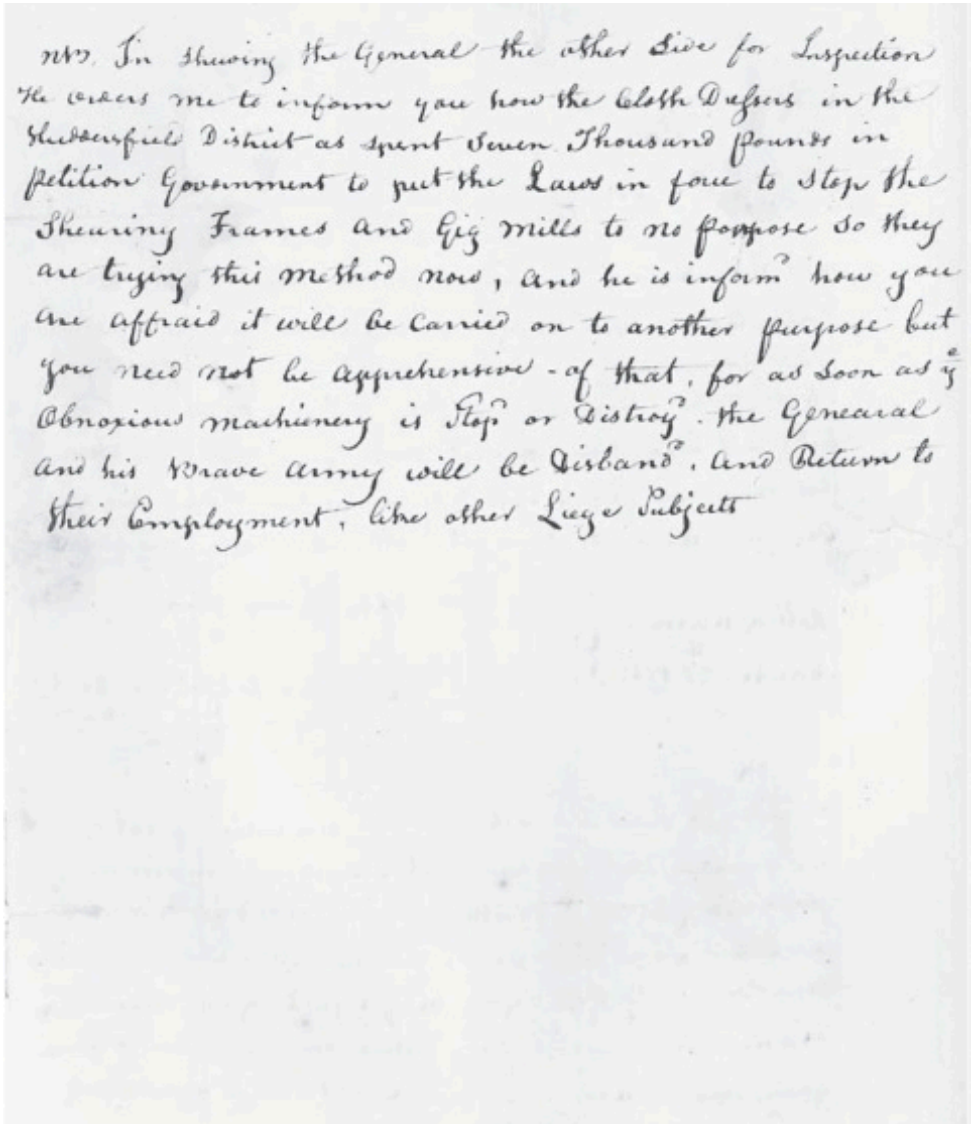 NB. In shewing the General the other Side for Inspection
He orders me to inform you how the Cloth Dressers in the
Huddersfield District as spent Seven Thousand Pounds in
Petition Government to put the Laws in force to Stop the
Shearing Frames and Gig Mills to no Porpose so they
are trying this method now, and he is inform'd how you
are affraid it will be Carried on to another purpose but
you need not be apprehensive - of that, for as Soon as ye
Obnoxious machienery is Stop'd or Distroy'd. the Genearal
and his Brave Army will be Disband'd, and Return to
their Employment, like other Liege Subjects